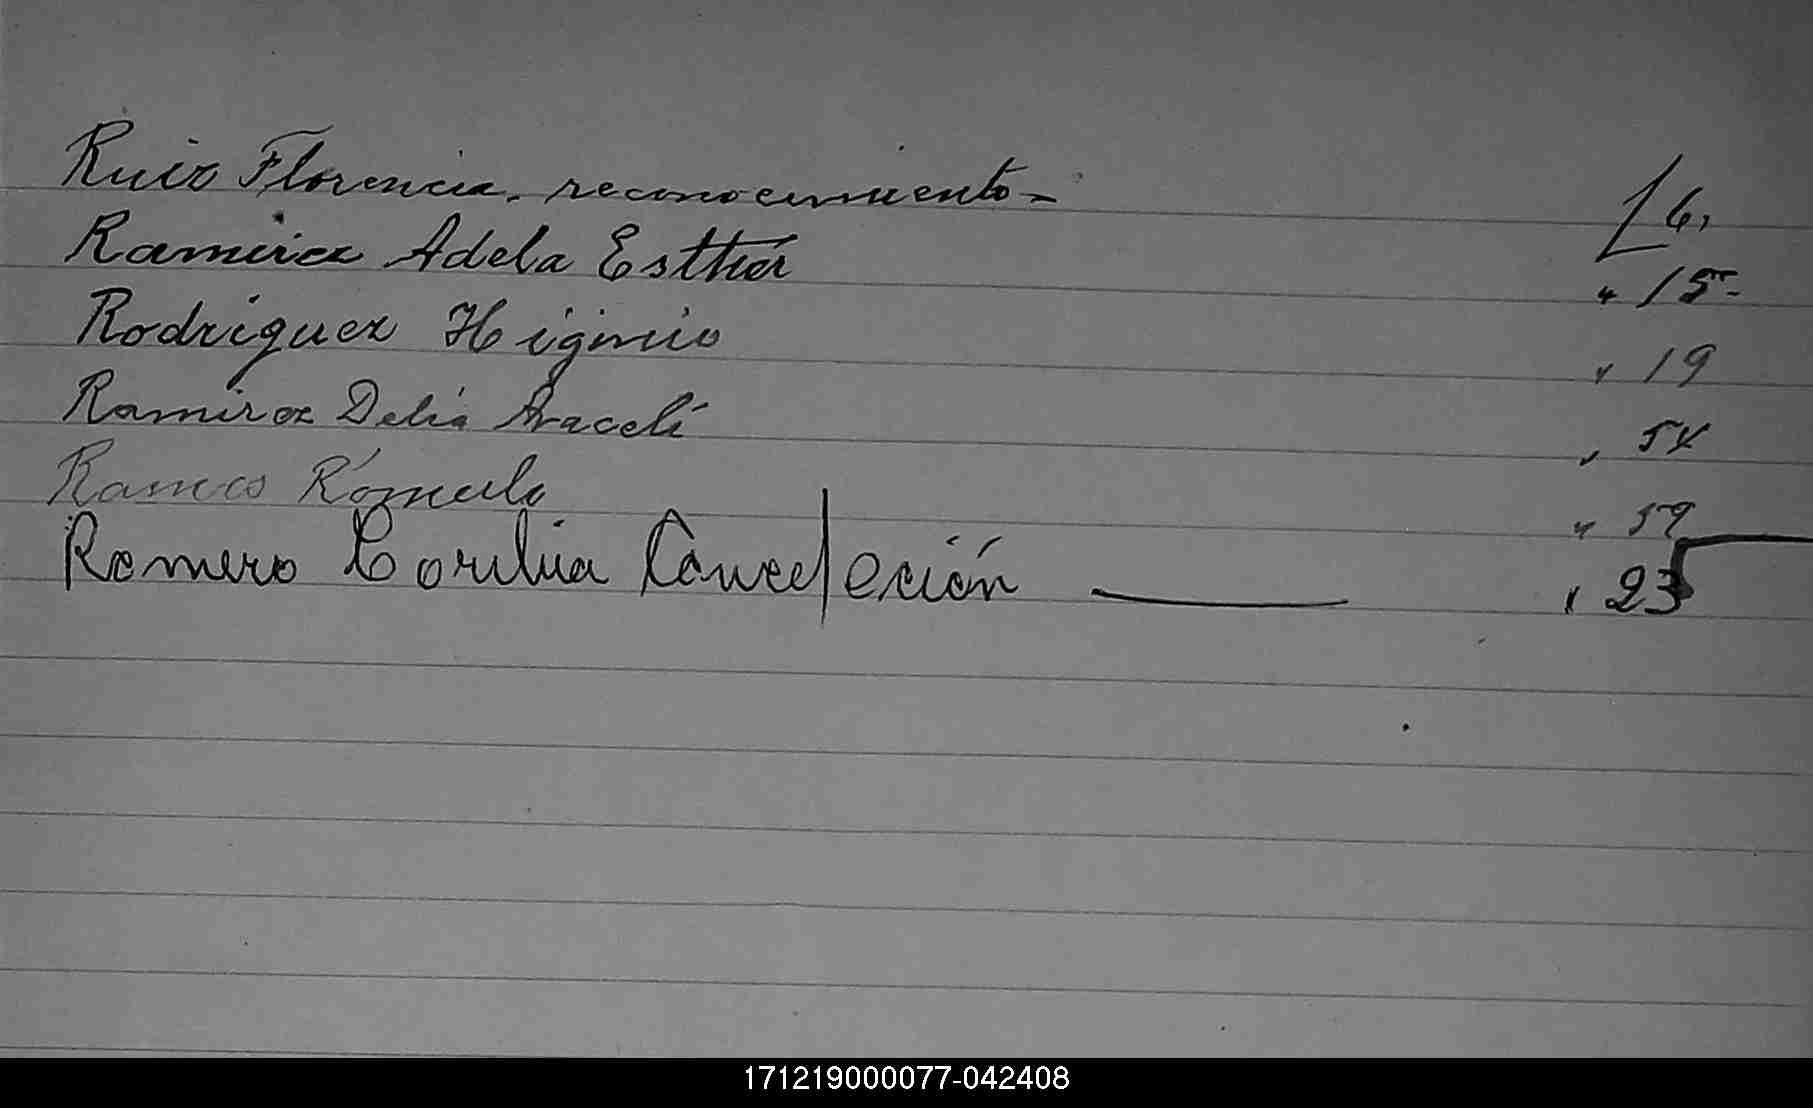 Ruiz Florencia. reconocimiento - f 6,
Ramirez Adela Esther " 15-
Rodriguez Higinio " 19
Ramirez Delia Araceli " 54
Ramos Rómulo " 59
Romero Corilia Concepción " 23
171219000077-042408